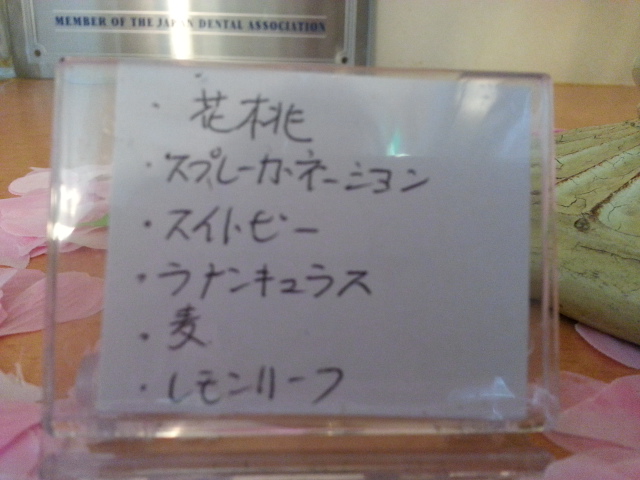 MEMBER OF THE JAPAN DENTAL ASSOCIATION
・花桃
・スプレーカーネーション
・スイトピー
・ラナンキュラス
・麦
・レモンリーフ